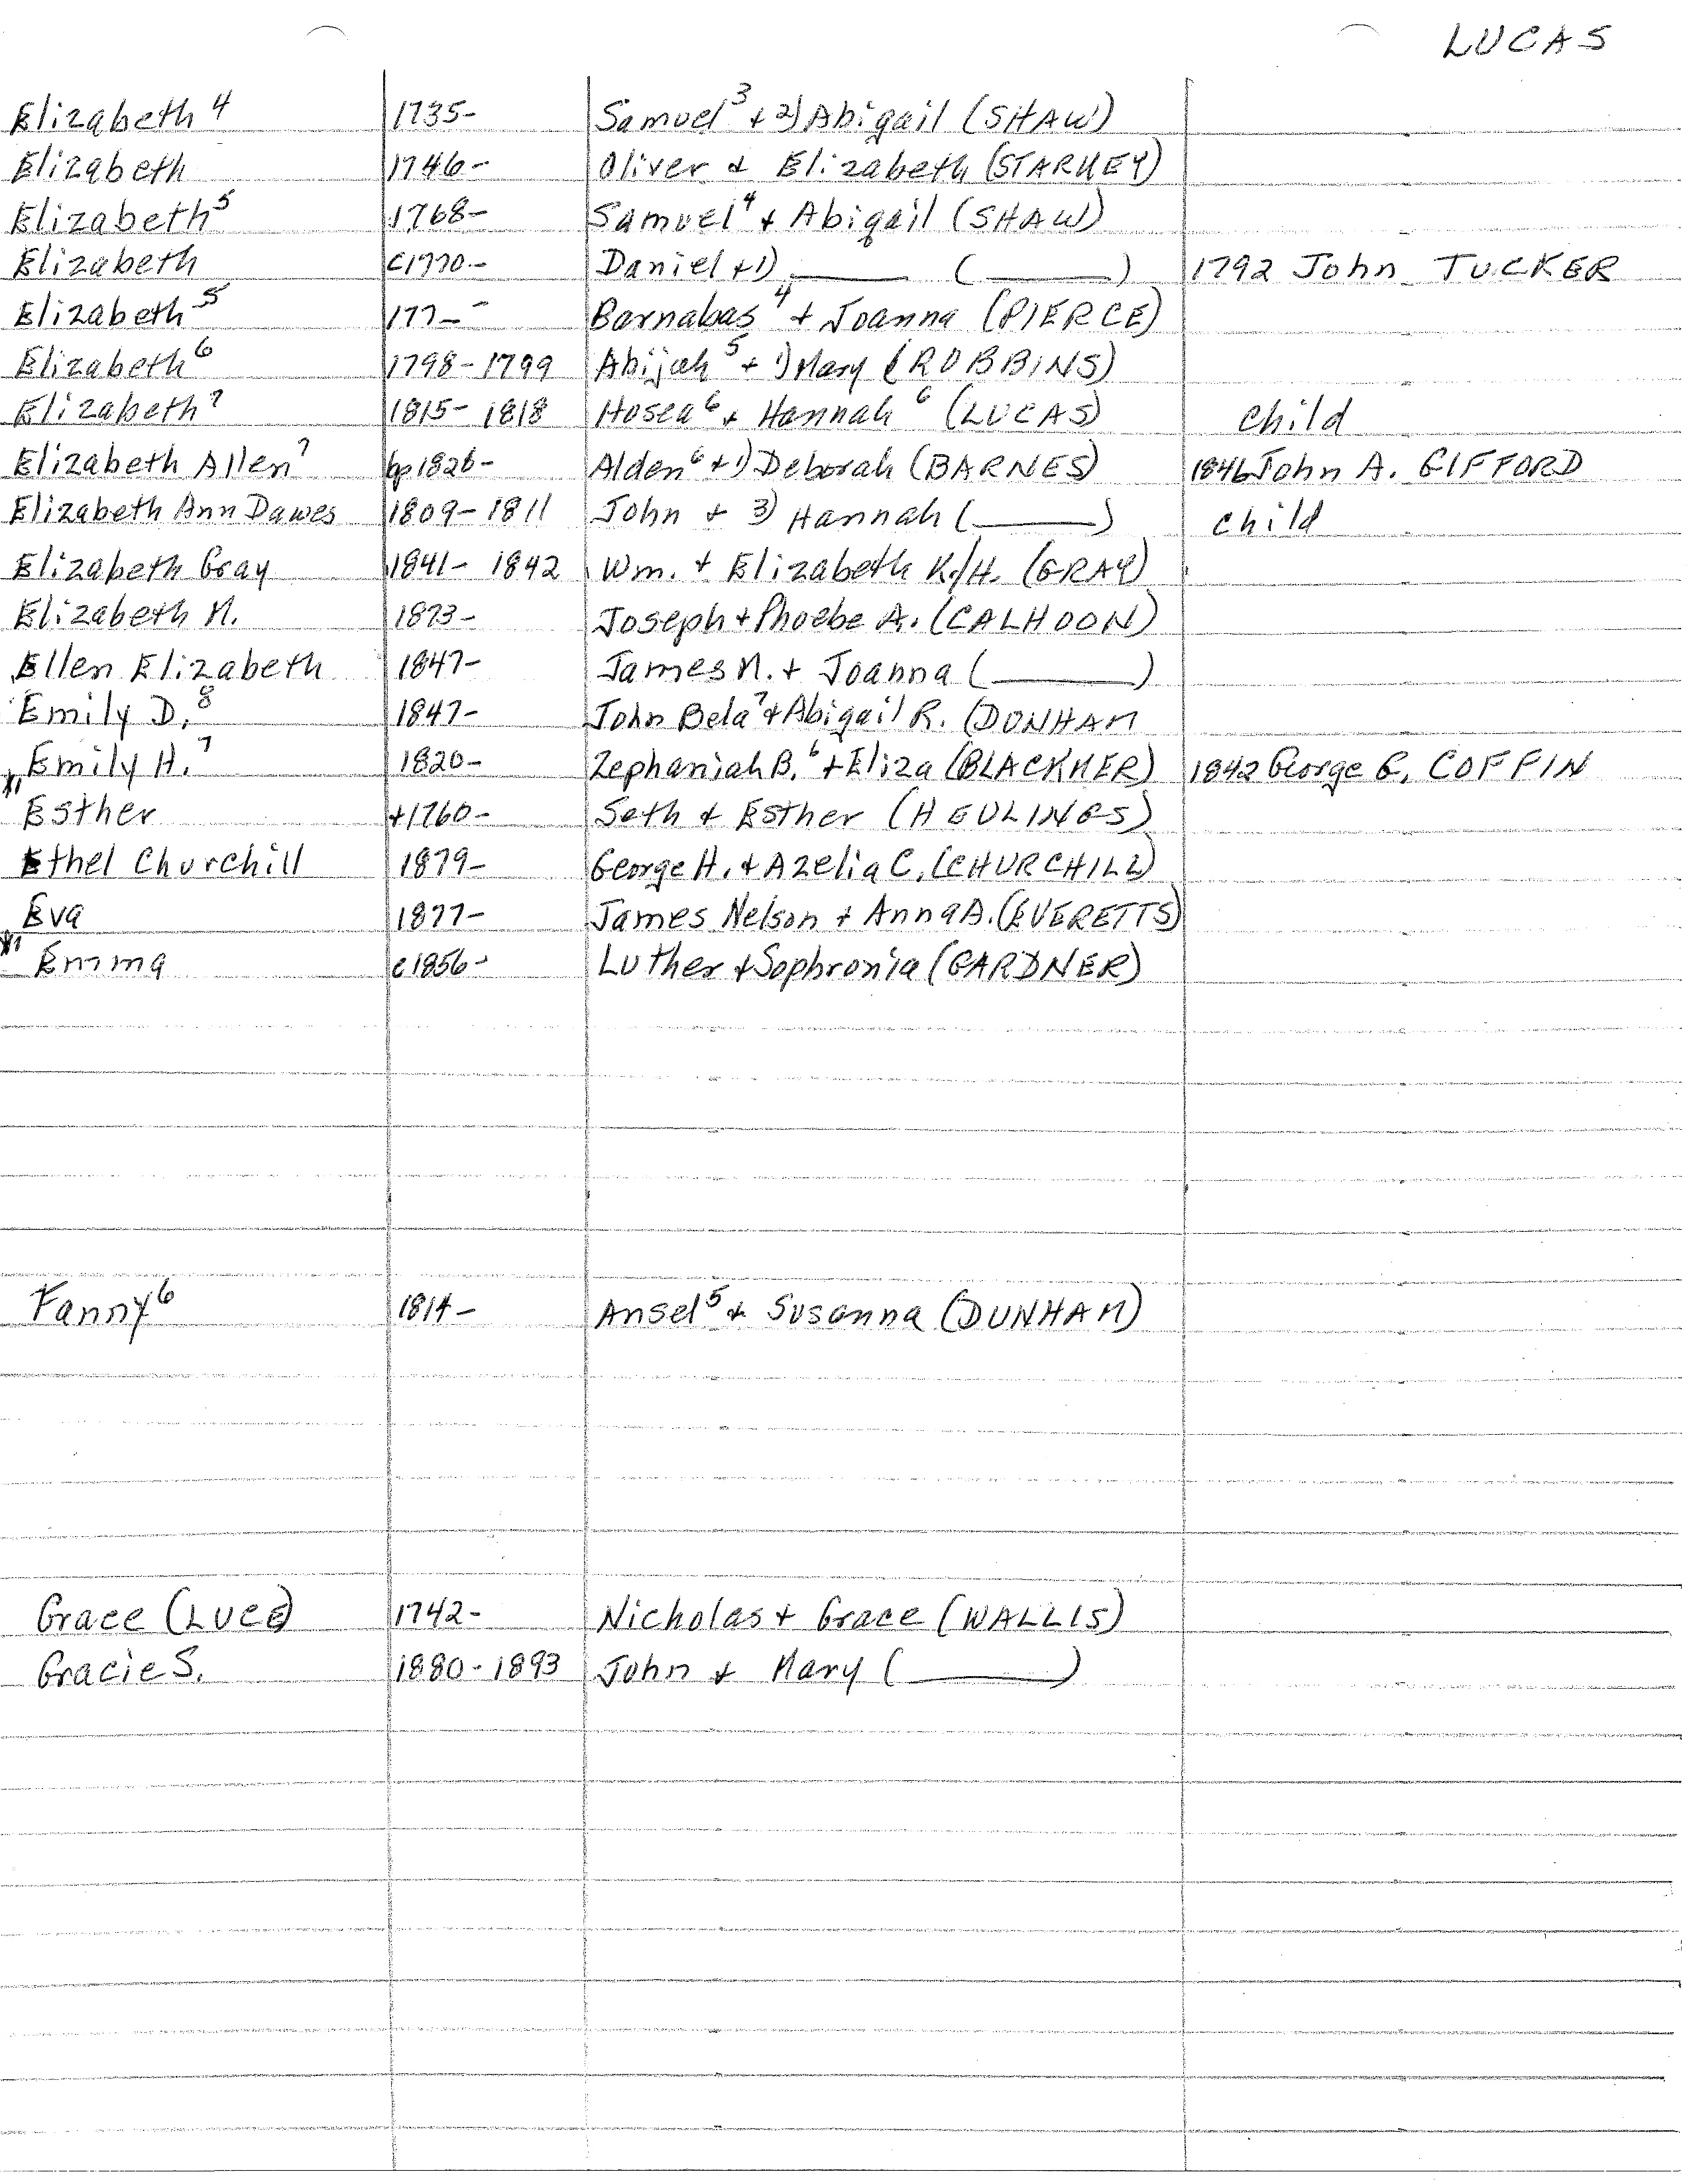 LUCAS
Elizabeth⁴ 1735- Samuel³ + 2) Abigail (SHAW)
Elizabeth 1746- Oliver + Elizabeth (STARKEY)
Elizabeth⁵ 1768- Samuel⁴ + Abigail (SHAW)
Elizabeth c1770- Daniel + 1) ______ (______) 1792 John TUCKER
Elizabeth⁵ 177_- Barnabas⁴ + Joanna (PIERCE)
Elizabeth⁶ 1798-1799 Abijah⁵ + 1) Mary (ROBBINS)
Elizabeth⁷ 1815-1818 Hosea⁶ + Hannah⁶ (LUCAS) child
Elizabeth Allen⁷ bp1826- Alden⁶ + 1) Deborah (BARNES) 1846 John A. GIFFORD
Elizabeth Ann Dawes 1809-1811 John + 3) Hannah (______) child
Elizabeth Gray 1841-1842 Wm. + Elizabeth K./H. (GRAY)
Elizabeth M. 1873- Joseph + Phoebe A. (CALHOON)
Ellen Elizabeth 1847- James M. + Joanna (______)
Emily D.⁸ 1847- John Bela⁷ + Abigail R. (DUNHAM
Emily H.⁷ 1820- Zephaniah B.⁶ + Eliza (BLACKMER) 1842 George G. COFFIN
*1
Esther +1760- Seth + Esther (HEULINGS)
Ethel Churchill 1879- George H. + Azelia C. (CHURCHILL)
Eva 1877- James Nelson + Anna A. (EVERETTS)
*1 Emma c1856- Luther + Sophronia (GARDNER)
Fanny⁶ 1814- Ansel⁵ + Susanna (DUNHAM)
Grace (LUCE) 1742- Nicholas + Grace (WALLIS)
Gracie S. 1880-1893 John + Mary (______)